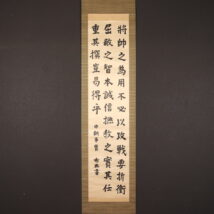 將帥之為用不必以攻戰要折衝
屈敵之智本誠信撫敎之實其任
重其撰豈易得乎